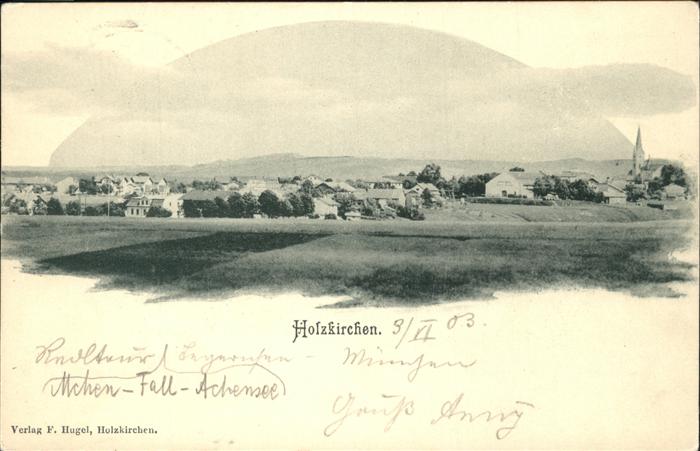 Holzkirchen. 3/VI 03.
Radltour Tegernsee - München
Mchen - Fall - Achensee
Gruß Anny
Verlag F. Hugel, Holzkirchen.